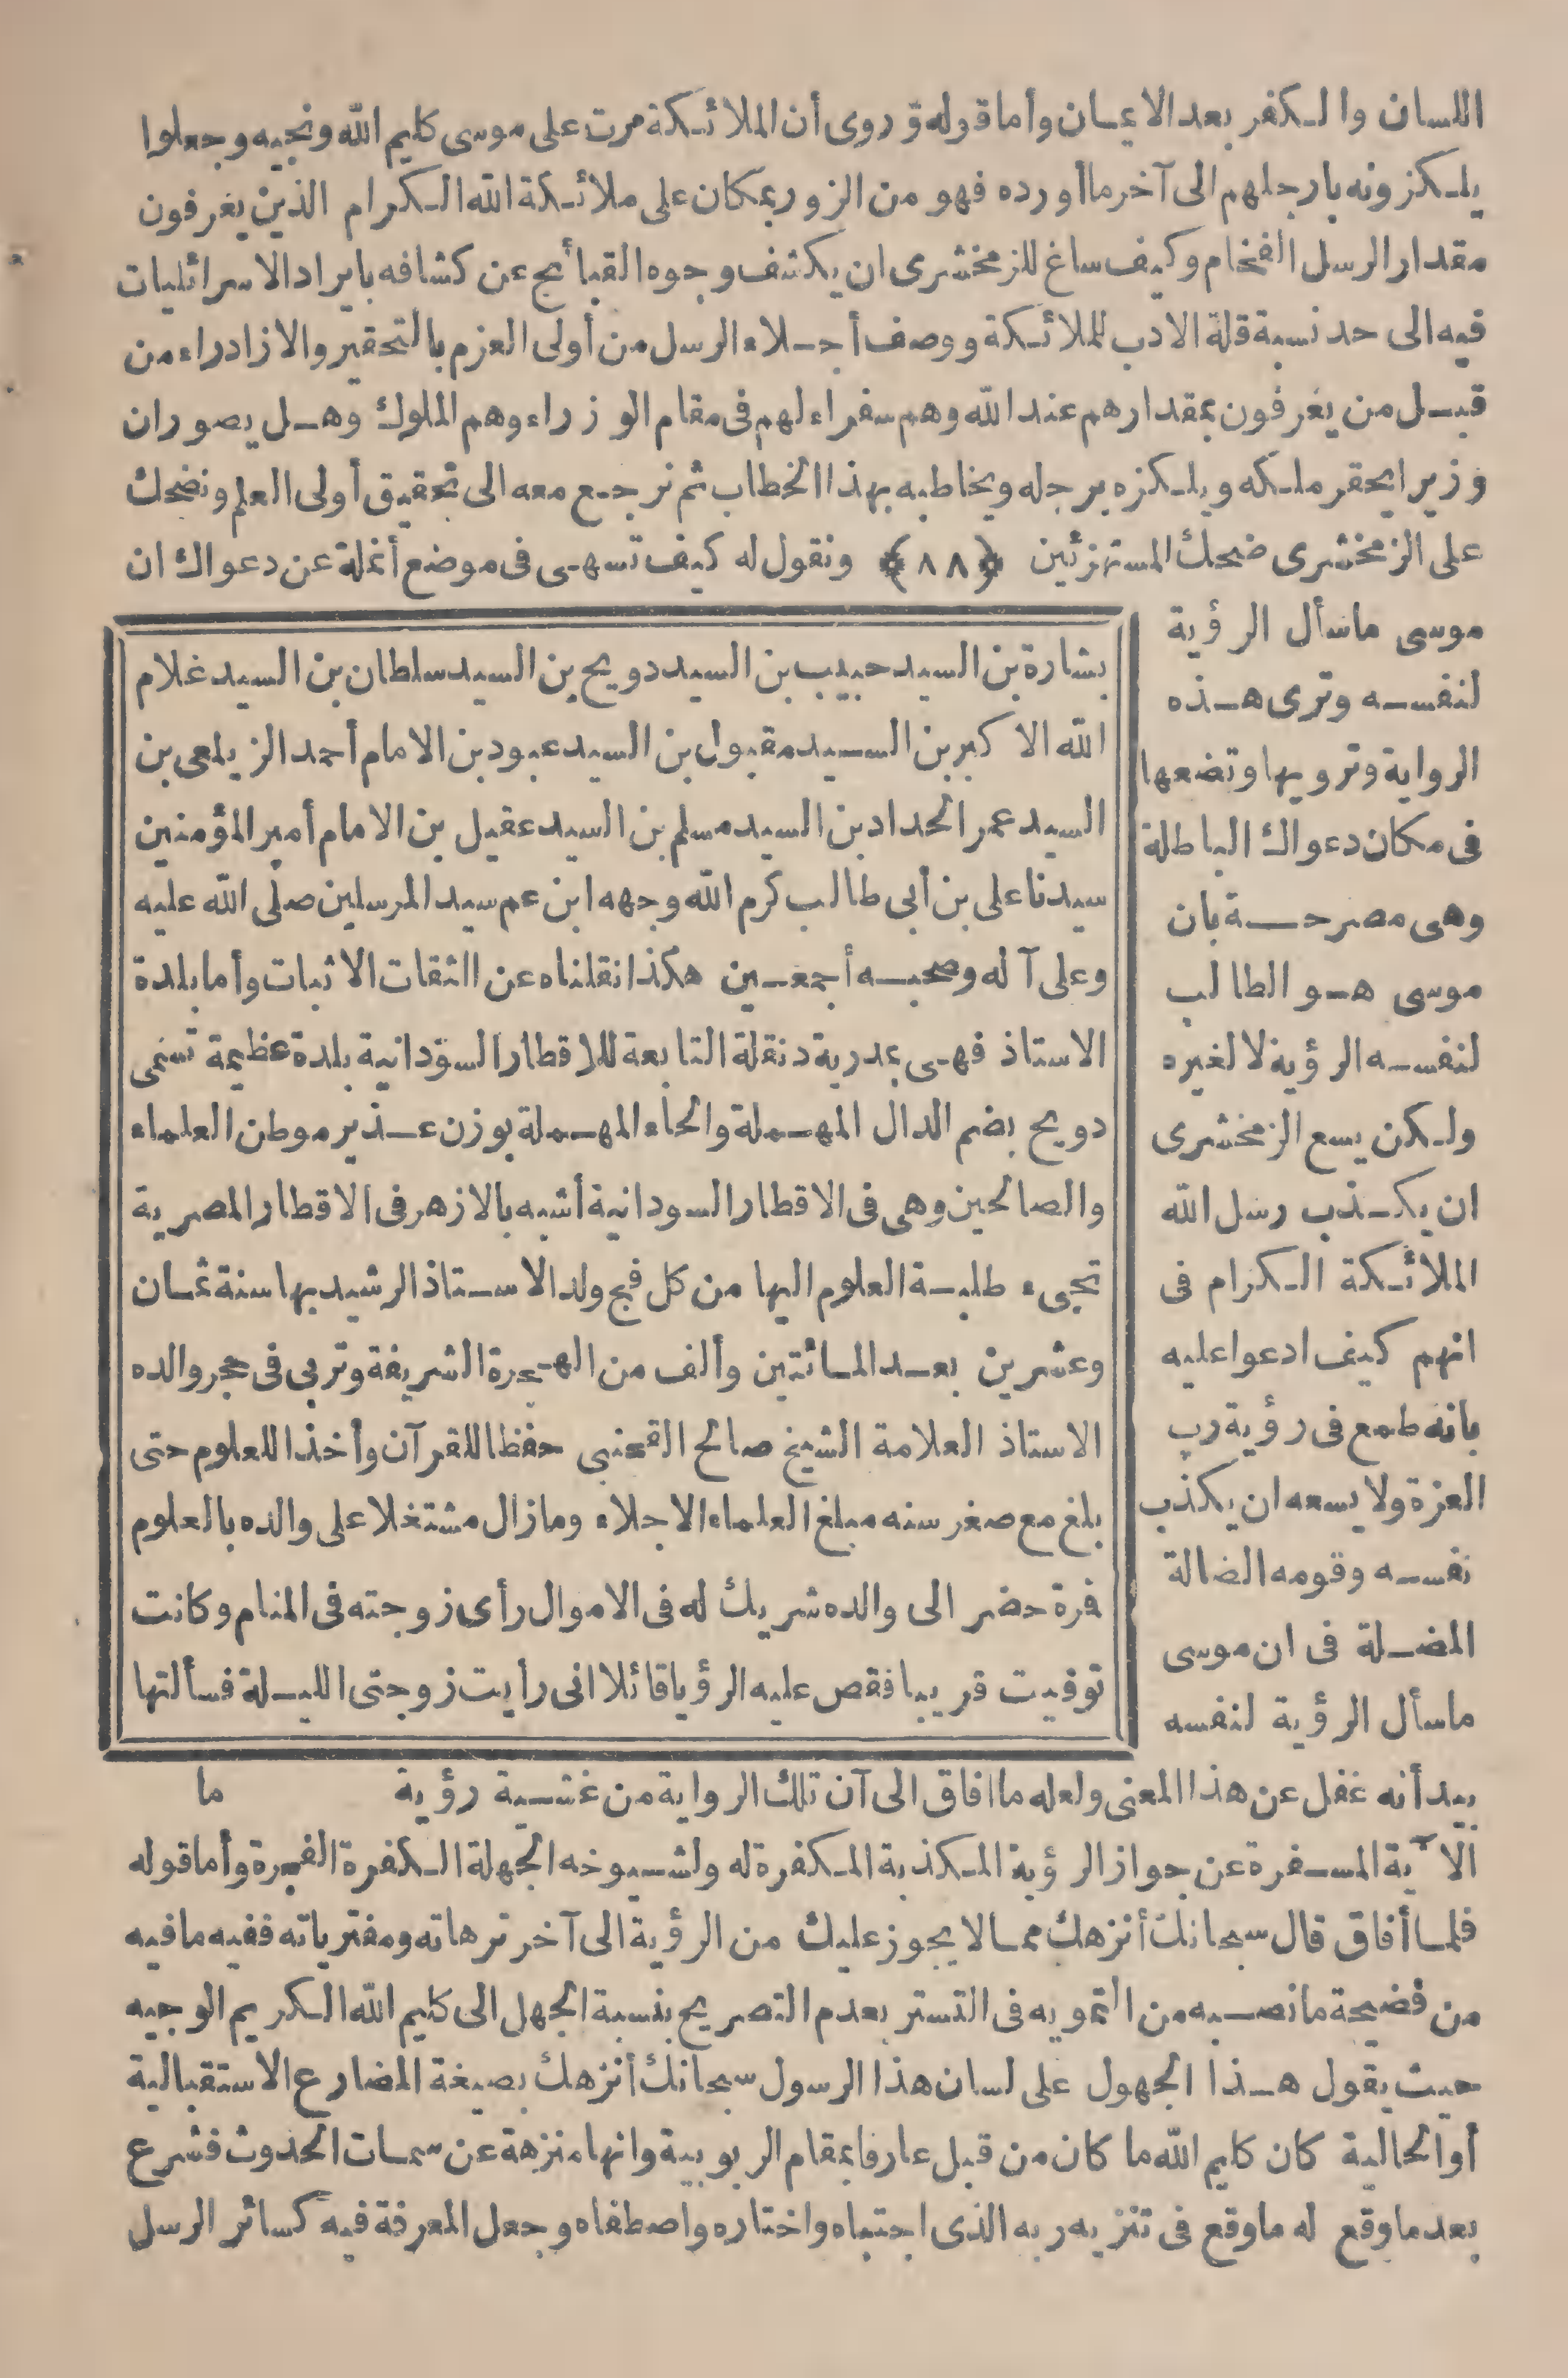 اللسان والكفر بعد الايمان وأما قوله وروى أن الملائكة مرت على موسى كليم الله ونجيه وجعلوا
يلكزونه بارجلهم الى آخر ما أورده فهو من الزور بمكان على ملائكة الله الكرام الذين يعرفون
مقدار الرسل الفخام وكيف ساغ للزمخشرى ان يكشف وجوه القبائح عن كشافه بايراد الاسرائليات
فيه الى حد نسبة قلة الادب للملائكة ووصف أجلاء الرسل من أولى العزم بالتحقير والازادراء من
قبل من يعرفون بمقدارهم عند الله وهم سفراء لهم فى مقام الوزراء وهم الملوك وهل يصور ان
وزيرا يحقر ملكه ويلكزه برجله ويخاطبه بهذا الخطاب ثم نرجع معه الى تحقيق أولى العلم ونضحك
على الزمخشرى ضحك المستهزئين ﴿٨٨﴾ ونقول له كيف تسهى فى موضع أنملة عن دعواك ان
موسى ماسأل الرؤية
لنفسه وترى هذه
الرواية وترويها وتضعها
فى مكان دعواك الباطلة
وهى مصرحة بان
موسى هو الطالب
لنفسه الرؤية لا لغيره
ولكن يسع الزمخشرى
ان يكذب رسل الله
الملائكة الكرام فى
انهم كيف ادعوا عليه
بانه طمع فى رؤية رب
العزة ولا يسعه ان يكذب
نفسه وقومه الضالة
المضلة فى ان موسى
ماسأل الرؤية لنفسه
بشارة بن السيد حبيب بن السيد دويح بن السيد سلطان بن السيد غلام
الله الاكبر بن السيد مقبول بن السيد عبود بن الامام أحمد الزيلعى بن
السيد عمر الحداد بن السيد مسلم بن السيد عقيل بن الامام أمير المؤمنين
سيدنا على بن أبى طالب كرم الله وجهه ابن عم سيد المرسلين صلى الله عليه
وعلى آله وصحبه أجمعين هكذا نقلناه عن الثقات الاثبات وأما بلدة
الاستاذ فهى بمدرية دنقلة التابعة للاقطار السودانية بلدة عظيمة تسمى
دويح بضم الدال المهملة والحاء المهملة بوزن عذير موطن العلماء
والصالحين وهى فى الاقطار السودانية أشبه بالازهر فى الاقطار المصرية
تجىء طلبة العلوم اليها من كل فج ولد الاستاذ الرشيد بها سنة ثمان
وعشرين بعد المائتين وألف من الهجرة الشريفة وتربى فى حجر والده
الاستاذ العلامة الشيخ صالح القعنبى حفظا للقرآن وأخذا للعلوم حتى
بلغ مع صغر سنه مبلغ العلماء الاجلاء ومازال مشتغلا على والده بالعلوم
فمرة حضر الى والده شريك له فى الاموال رأى زوجته فى المنام وكانت
توفيت قريبا فقص عليه الرؤيا قائلا انى رأيت زوجتى الليلة فسألتها
بيد أنه غفل عن هذا المعنى ولعله ما افاق الى آن تلك الرواية من غشية رؤية ما
الآية المسفرة عن جواز الرؤية المكذبة المكفرة له ولشيوخه الجهلة الكفرة الفجرة وأما قوله
فلما أفاق قال سبحانك أنزهك مما لا يجوز عليك من الرؤية الى آخر ترهاته ومفترياته ففيه مافيه
من فضيحة مانصبه من التمويه فى التستر بعدم التصريح بنسبة الجهل الى كليم الله الكريم الوجيه
حيث يقول هذا الجهول على لسان هذا الرسول سبحانك أنزهك بصيغة المضارع الاستقبالية
أو الحالية كان كليم الله ما كان من قبل عارفا بمقام الربوبية وانها منزهة عن سمات الحدوث فشرع
بعد ماوقع له ماوقع فى تنزيه ربه الذى اجتباه واختاره واصطفاه وجعل المعرفة فيه كسائر الرسل